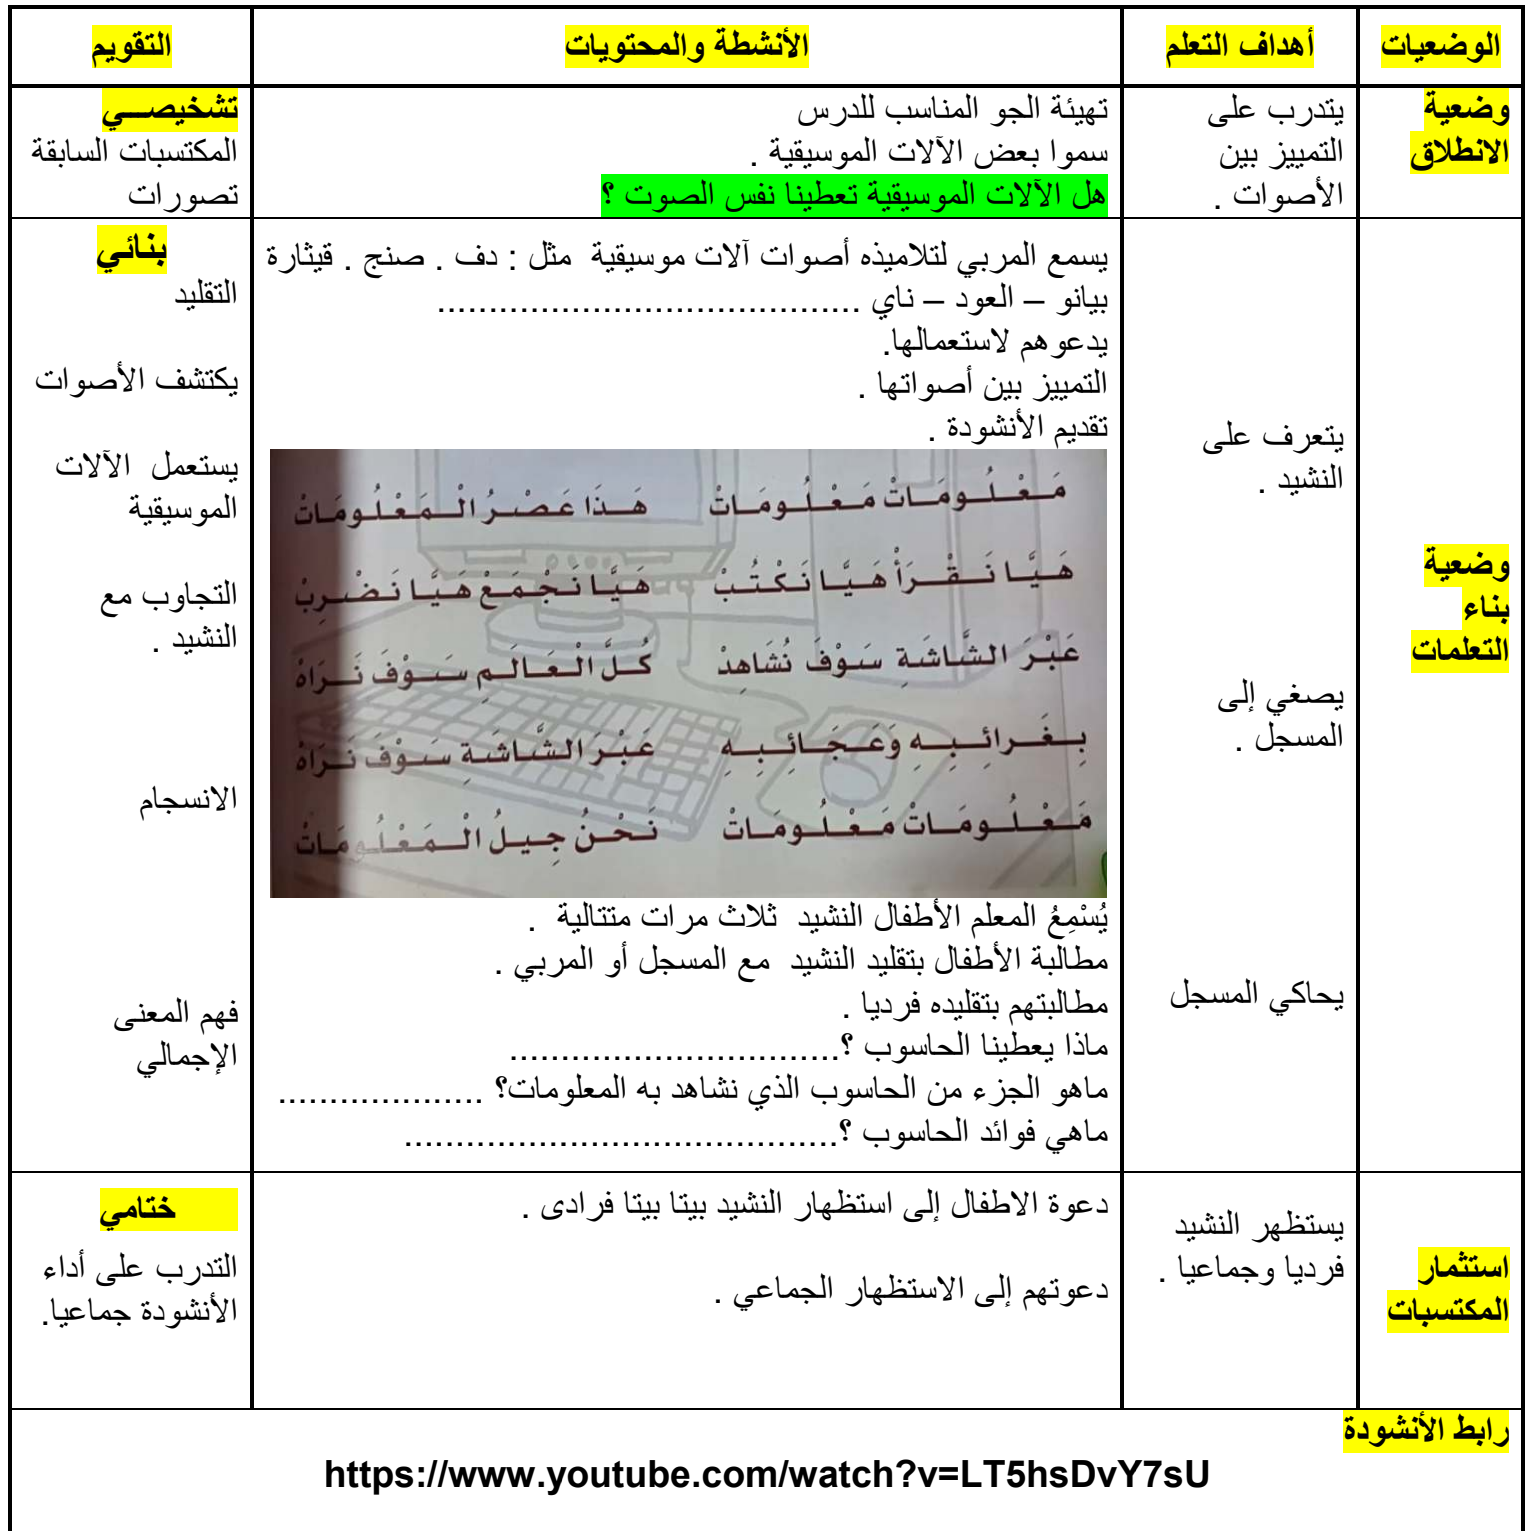 الوضعيات
أهداف التعلم
الأنشطة والمحتويات
التقويم
وضعية
الانطلاق
يتدرب على
التمييز بين
الأصوات .
تهيئة الجو المناسب للدرس
سموا بعض الآلات الموسيقية .
هل الآلات الموسيقية تعطينا نفس الصوت ؟
تشخيصـــي
المكتسبات السابقة
تصورات
وضعية
بناء
التعلمات
يتعرف على
النشيد .
يصغي إلى
المسجل .
يحاكي المسجل
يسمع المربي لتلاميذه أصوات آلات موسيقية مثل : دف . صنج . قيثارة
بيانو – العود – ناي .........................................
يدعوهم لاستعمالها.
التمييز بين أصواتها .
تقديم الأنشودة .
مَعْلُومَاتْ مَعْلُومَاتْ هَذَا عَصْرُ الْمَعْلُومَاتْ
هَيَّا نَقْرَأْ هَيَّا نَكْتُبْ هَيَّا نَجْمَعْ هَيَّا نَضْرِبْ
عَبْرَ الشَّاشَةِ سَوْفَ نُشَاهِدْ كُلَّ الْعَالَمِ سَوْفَ نَرَاهْ
بِغَرائِبِهِ وَعَجَائِبِهِ عَبْرَ الشَّاشَةِ سَوْفَ نَرَاهْ
مَعْلُومَاتْ مَعْلُومَاتْ نَحْنُ جِيلُ الْمَعْلُومَاتْ
يُسْمِعُ المعلم الأطفال النشيد ثلاث مرات متتالية .
مطالبة الأطفال بتقليد النشيد مع المسجل أو المربي .
مطالبتهم بتقليده فرديا .
ماذا يعطينا الحاسوب ؟................................
ماهو الجزء من الحاسوب الذي نشاهد به المعلومات؟ ....................
ماهي فوائد الحاسوب ؟..........................................
بنائي
التقليد
يكتشف الأصوات
يستعمل الآلات
الموسيقية
التجاوب مع
النشيد .
الانسجام
فهم المعنى
الإجمالي
استثمار
المكتسبات
يستظهر النشيد
فرديا وجماعيا .
دعوة الاطفال إلى استظهار النشيد بيتا بيتا فرادى .
دعوتهم إلى الاستظهار الجماعي .
ختامي
التدرب على أداء
الأنشودة جماعيا.
رابط الأنشودة
https://www.youtube.com/watch?v=LT5hsDvY7sU